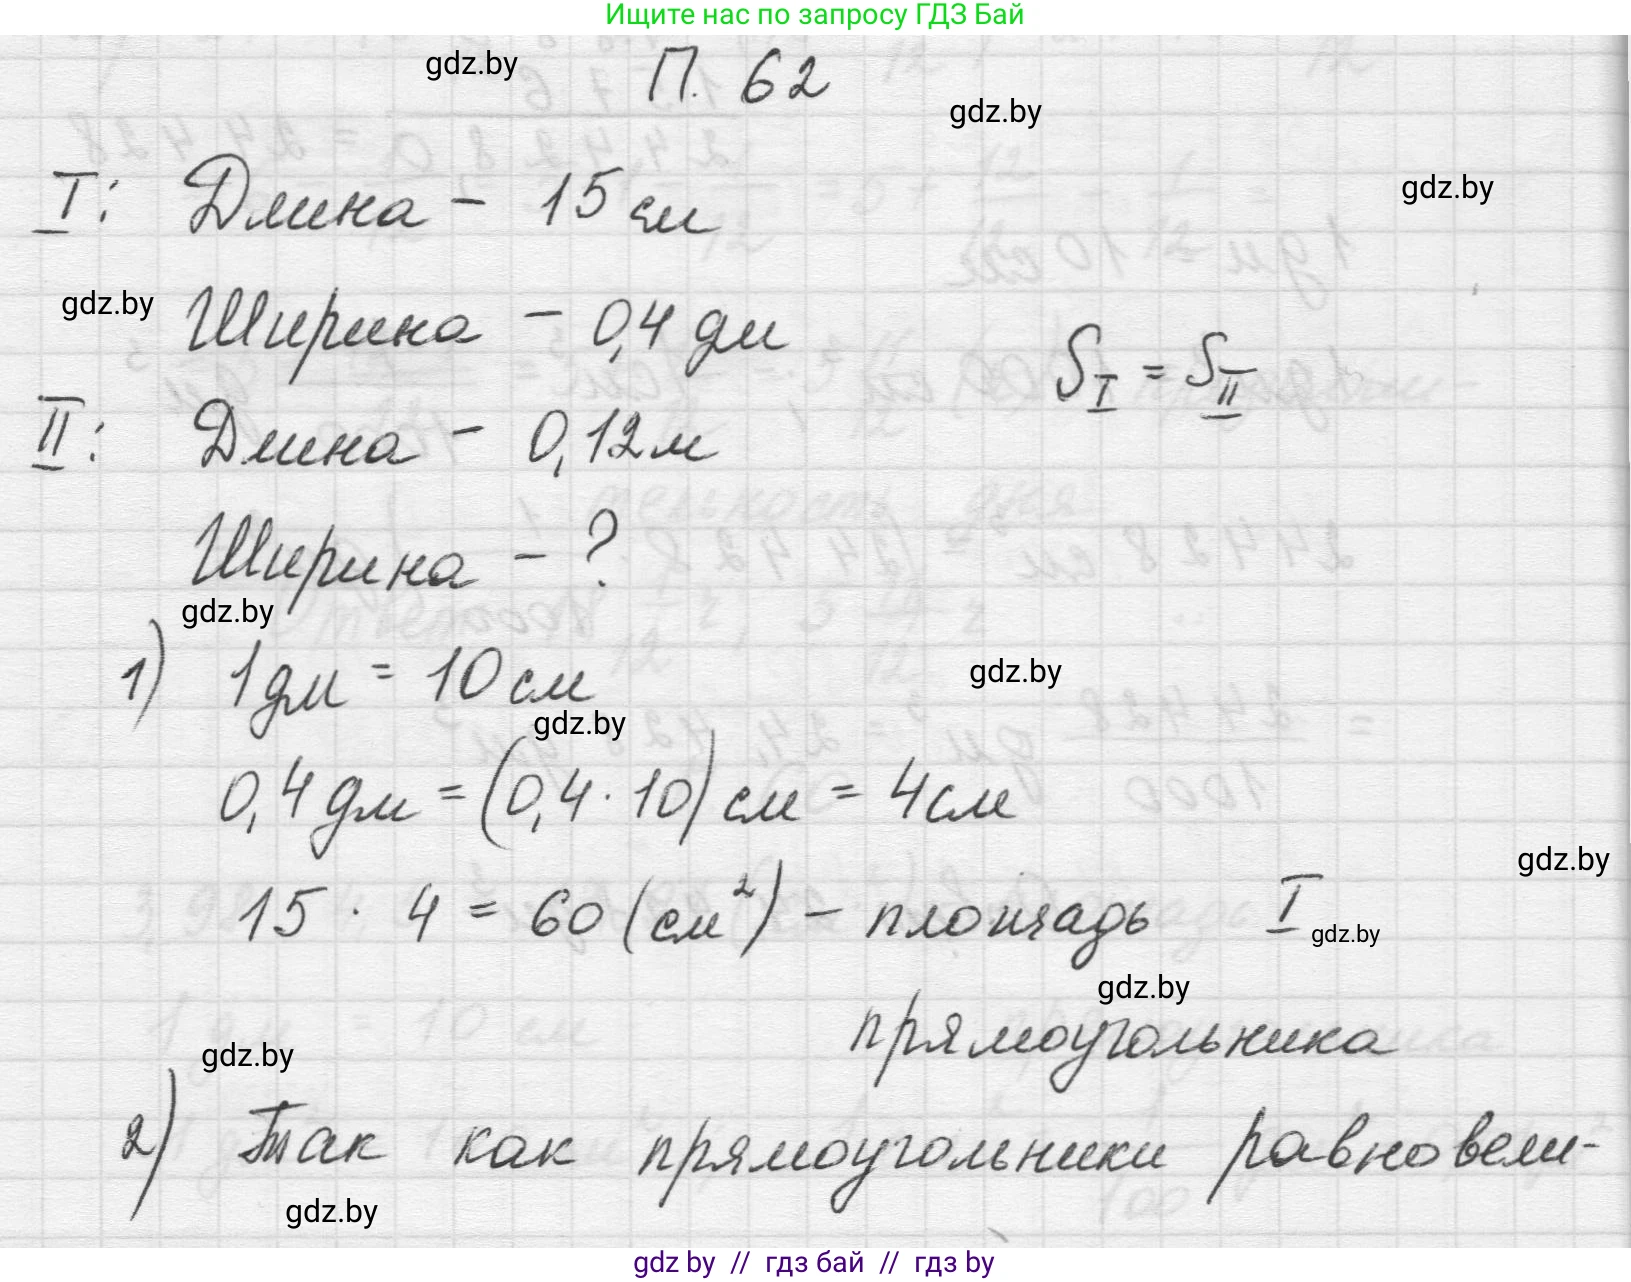 Ищите нас по запросу ГДЗ Бай
gdz.by П. 62
gdz.by
I: Длина - 15 см gdz.by
gdz.by Ширина - 0,4 дм
S I = S II
II: Длина - 0,12 м
Ширина - ?
gdz.by
1) 1 дм = 10 см gdz.by
gdz.by
0,4 дм = (0,4 · 10) см = 4 см
gdz.by
15 · 4 = 60 (см²) - площадь I gdz.by
gdz.by
прямоугольника
gdz.by
2) Так как прямоугольники равновели-
gdz.by
gdz by // гдз бай // гдз by